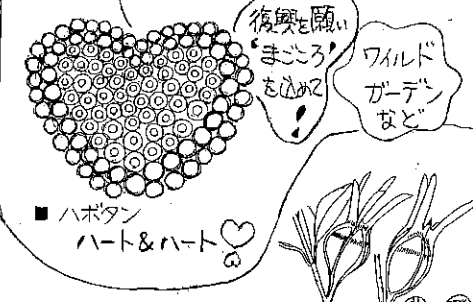 復興を願い
'まごころ'
を込めて
!
ワイルド
ガーデン
など
■ ハボタン
ハート&ハート♡